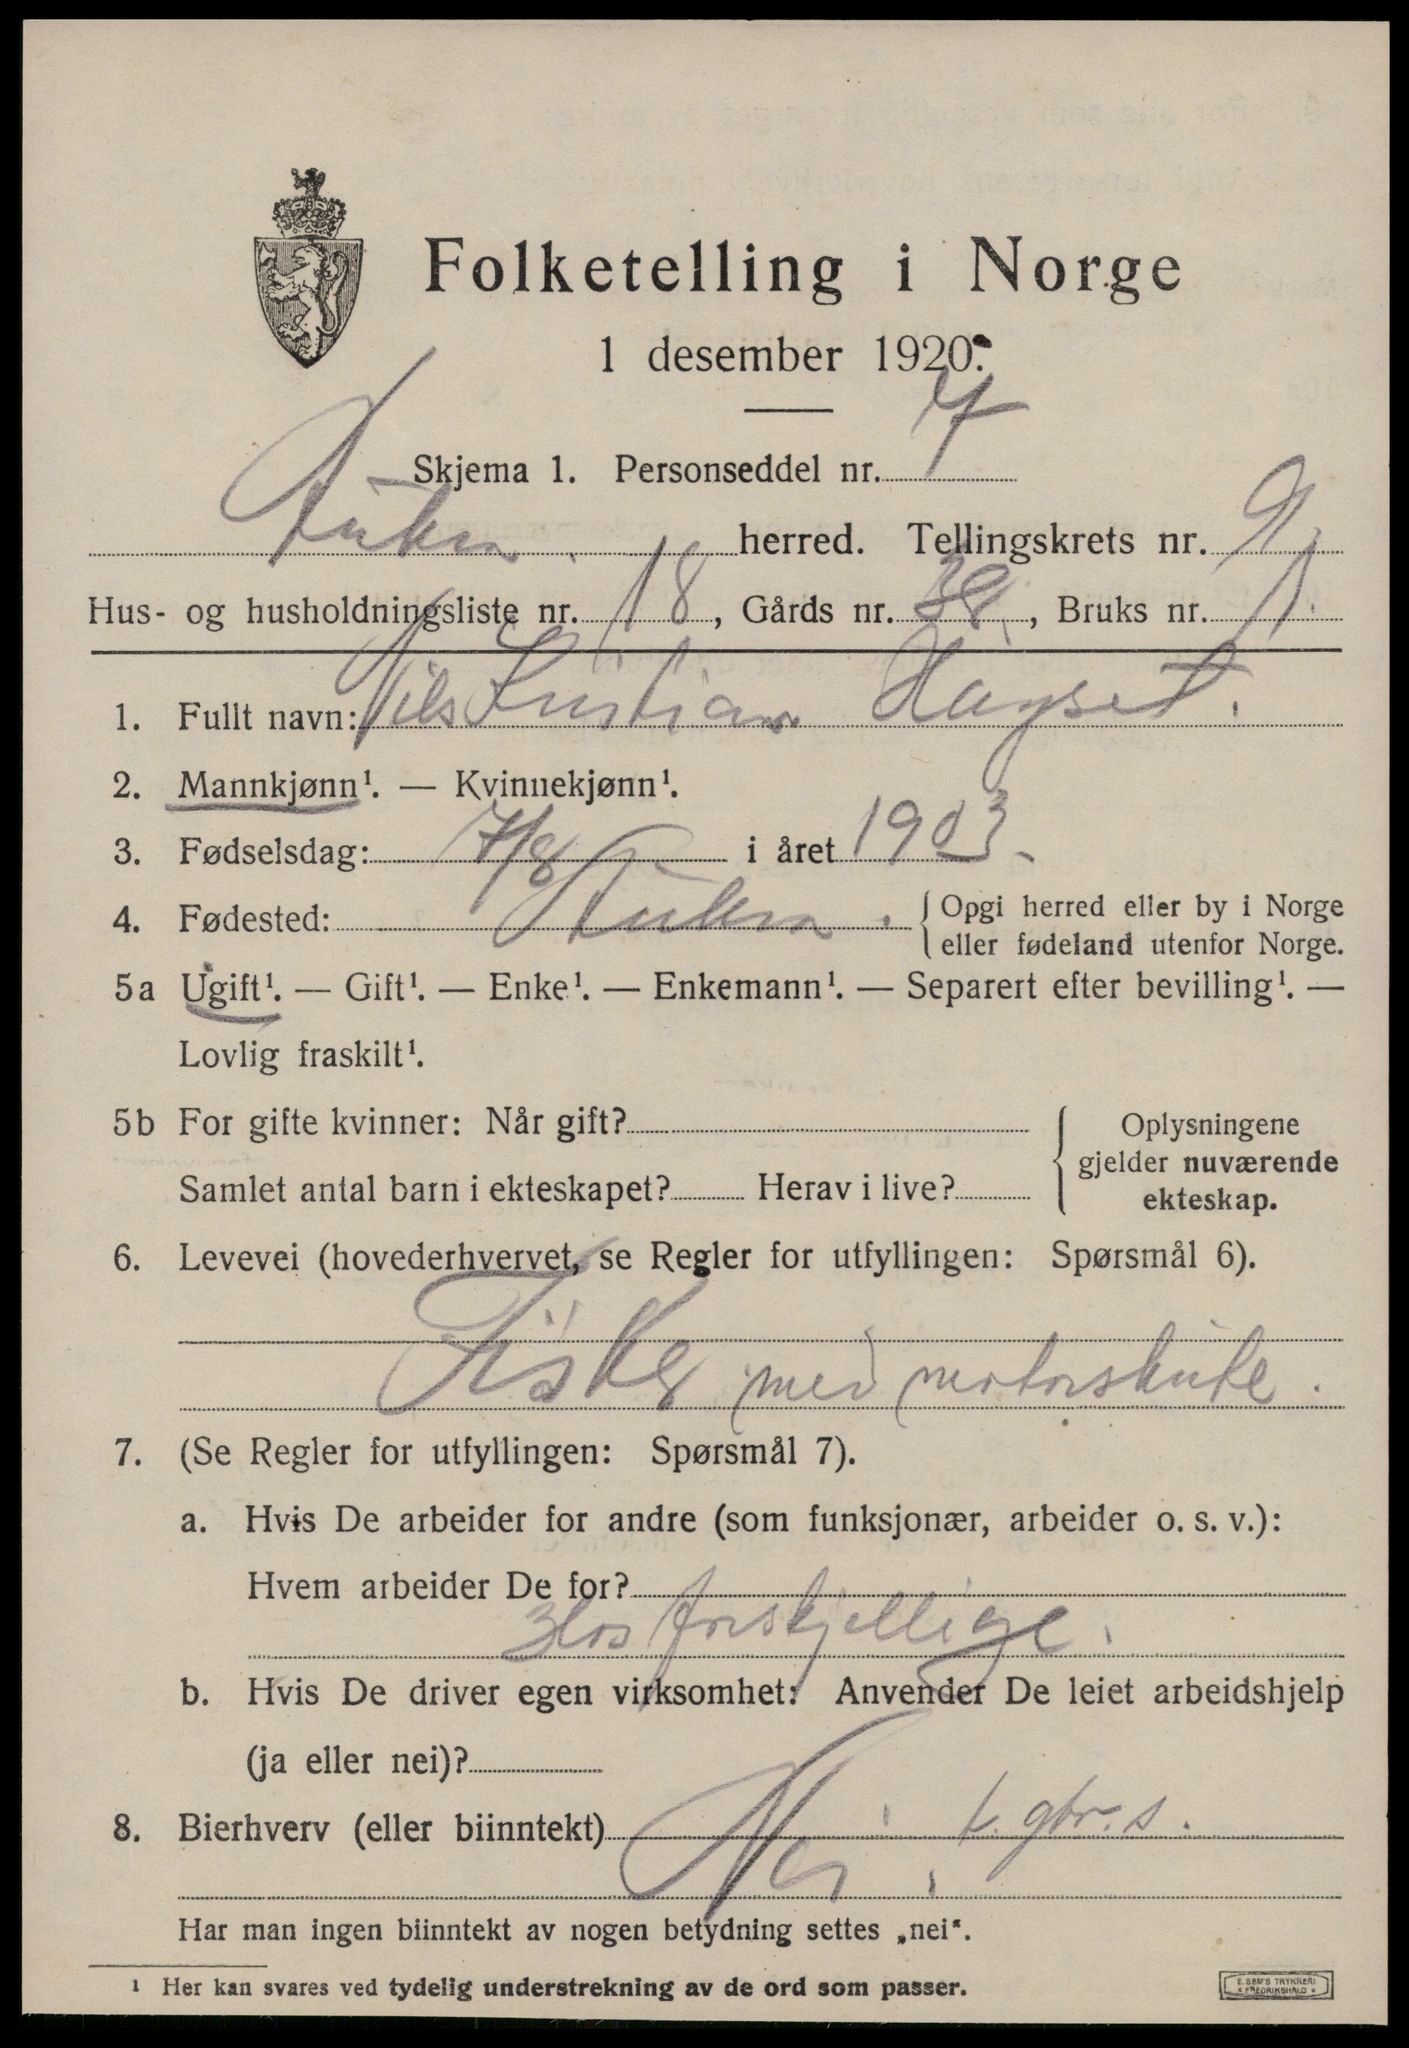 Folketelling i Norge
1 desember 1920.
Skjema 1. Personseddel nr. 7
herred. Tellingskrets nr. 9
Hus- og husholdningsliste nr. 18, Gårds nr. 38, Bruks nr. 1.
1. Fullt navn: Nils Kristian Høyset.
2. Mannkjønn¹. — Kvinnekjønn¹.
3. Fødselsdag: 7/8 i året 1903.
4. Fødested:
{ Opgi herred eller by i Norge
eller fødeland utenfor Norge.
5a Ugift¹. — Gift¹. — Enke¹. — Enkemann¹. — Separert efter bevilling¹. —
Lovlig fraskilt¹.
5b For gifte kvinner: Når gift?
Samlet antal barn i ekteskapet? Herav i live?
{ Oplysningene
gjelder nuværende
ekteskap.
6. Levevei (hovederhvervet, se Regler for utfyllingen: Spørsmål 6).
Fisker med motorskute.
7. (Se Regler for utfyllingen: Spørsmål 7).
a. Hvis De arbeider for andre (som funksjonær, arbeider o. s. v.):
Hvem arbeider De for?
Hos forskjellige.
b. Hvis De driver egen virksomhet: Anvender De leiet arbeidshjelp
(ja eller nei)?
8. Bierhverv (eller biinntekt) gbr.s.
Nei.
Har man ingen biinntekt av nogen betydning settes „nei".
¹ Her kan svares ved tydelig understrekning av de ord som passer.
E. SEM'S TRYKKERI
FREDRIKSHALD